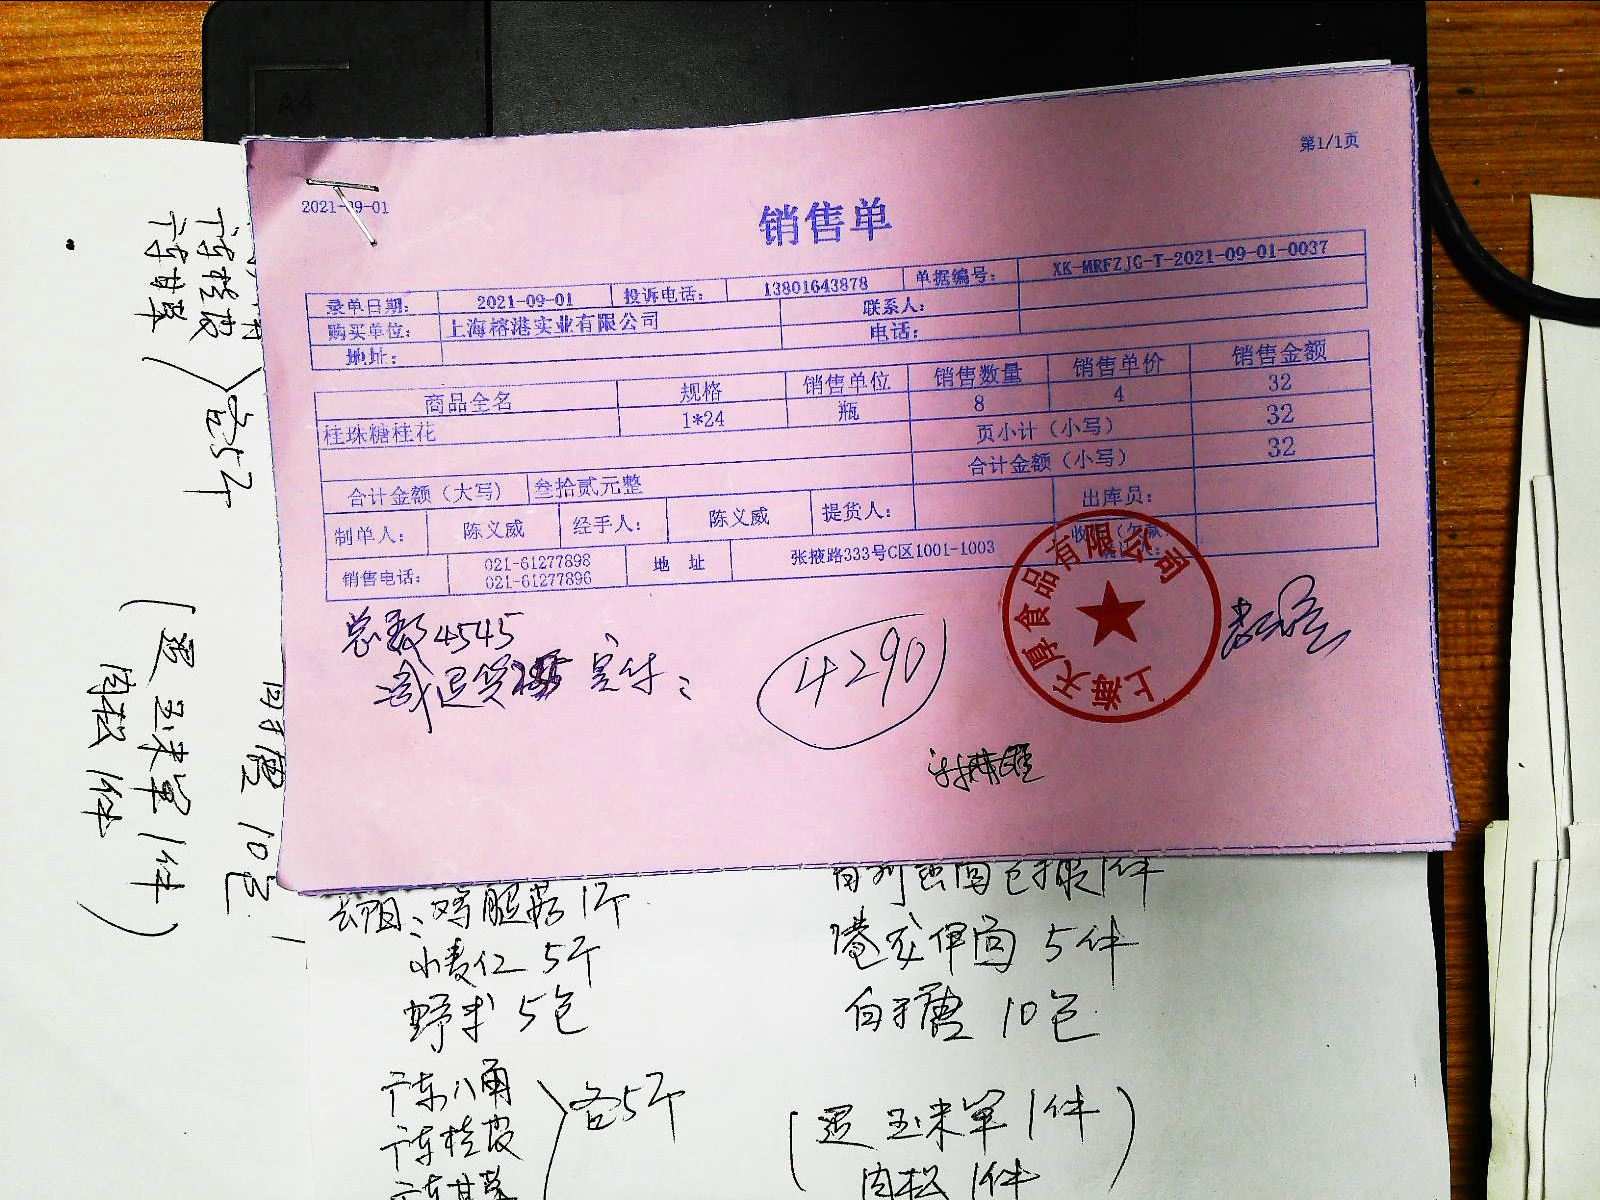 第1/1页
2021-09-01
销售单
录单日期: 2021-09-01 投诉电话: 13801643878 单据编号: XK-MRFZJG-T-2021-09-01-0037
购买单位: 上海榕港实业有限公司 联系人:
地址: 电话:
商品全名 规格 销售单位 销售数量 销售单价 销售金额
桂珠糖桂花 1*24 瓶 8 4 32
页小计（小写） 32
合计金额（小写） 32
合计金额（大写） 叁拾贰元整
制单人: 陈义威 经手人: 陈义威 提货人: 出库员:
销售电话: 021-61277898 地 址 张掖路333号C区1001-1003
021-61277896
上海天厚食品有限公司
总数4545
减退货255 实付:
4290
鸡腿菇 1斤
小麦仁 5斤
野米 5包
广东八角
广东桂皮
各5斤
1件
伊面 5件
10包
(退 玉米笋 1件)
肉松 1件
广东桂皮
各5斤
10包
(退 玉米笋 1件)
肉松 1件